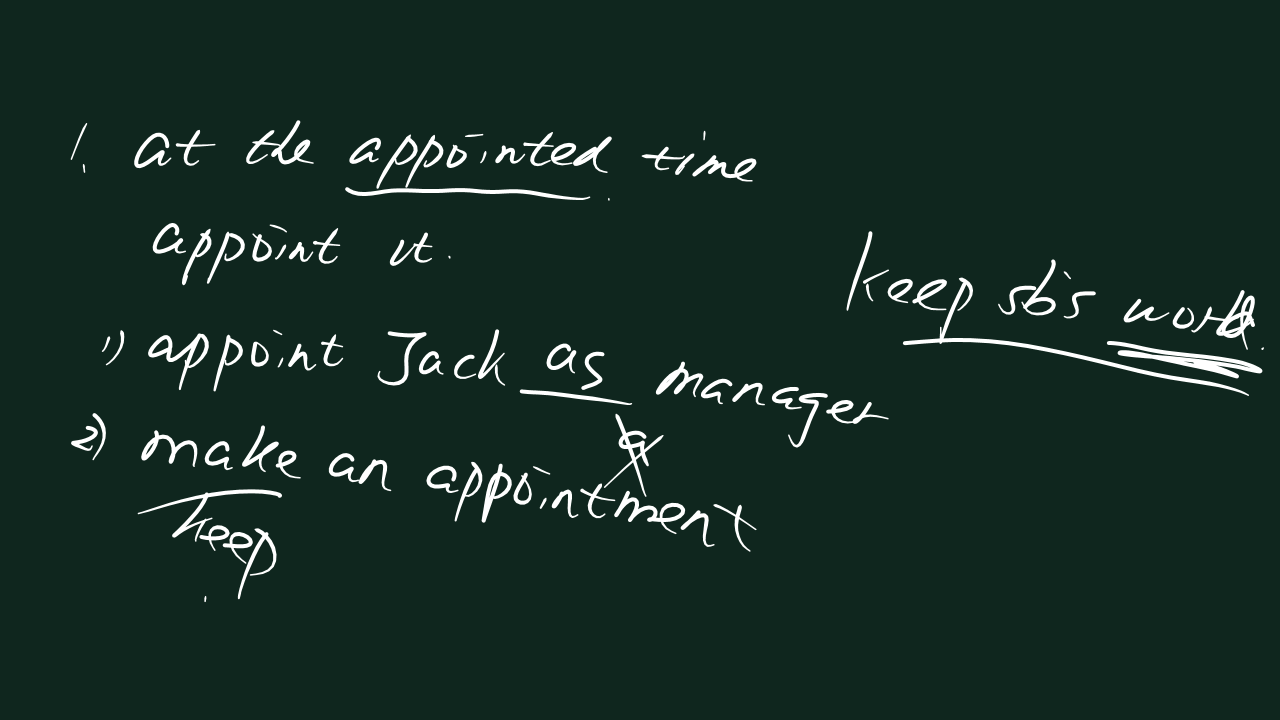 1. at the appointed time
appoint vt.
1) appoint Jack as manager
a
2) make an appointment
keep
keep sb's word.